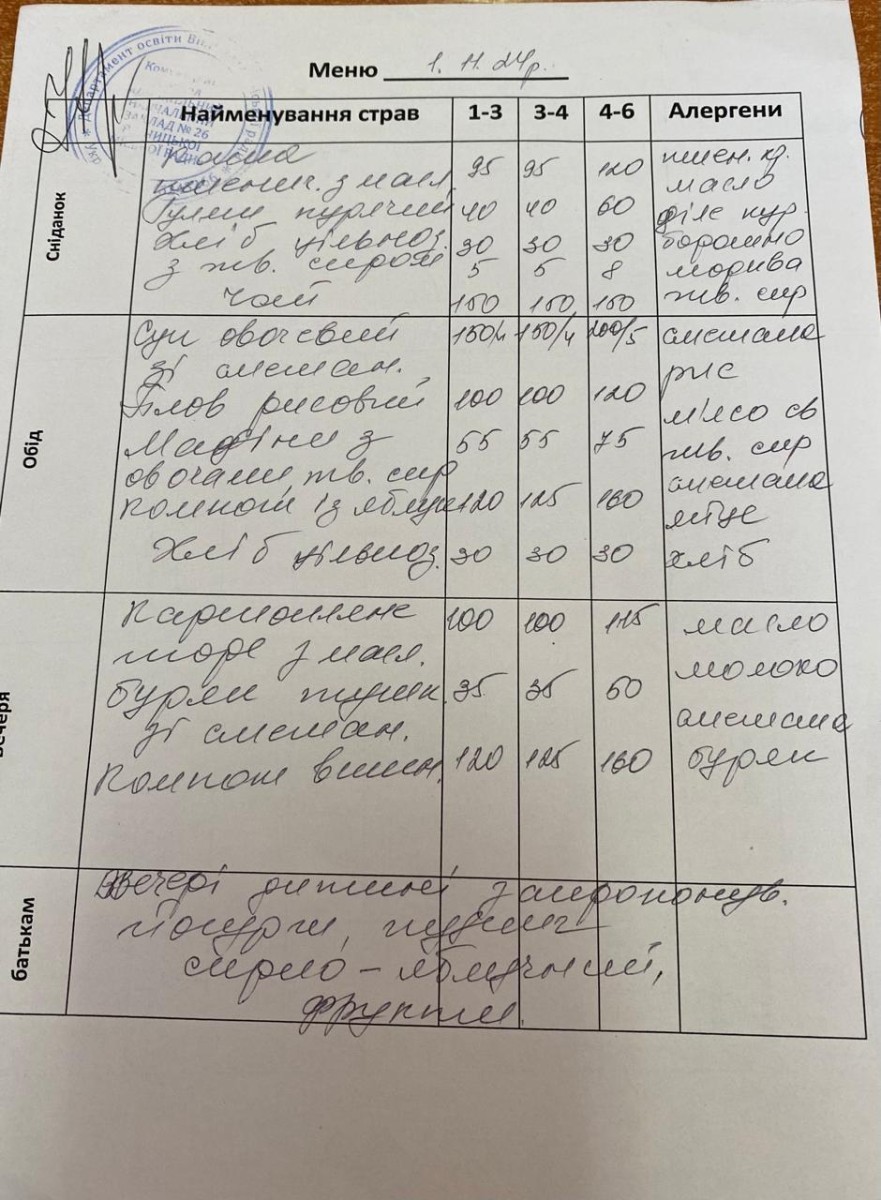 Меню 1. 11. 24р.
Найменування страв 1-3 3-4 4-6 Алергени
Сніданок
Каша пшен. кр.
пшенич. з масл. 95 95 120 масло
Гуляш курячий 40 40 60 філе кур.
Хліб цільноз. 30 30 30 борошно
з тв. сиром 5 5 8 морква
Чай 150 150 150 тв. сир
Обід
Суп овочевий 150/4 150/4 200/5 сметана
зі сметан. рис
Плов рисовий 100 100 120 м'ясо св
Мафіни з 55 55 75 тв. сир
овочами, тв. сир сметана
Компот із яблук 120 125 160 яйце
Хліб цільноз. 30 30 30 хліб
Вечеря
Картопляне 100 100 115 масло
пюре з масл. молоко
буряк тушк. 35 35 60 сметана
зі сметан.
Компот вишн. 120 125 160 буряк
батькам
Ввечері дитині запропонув.
йогурти, пудинг
сирно-яблучний,
фрукти.